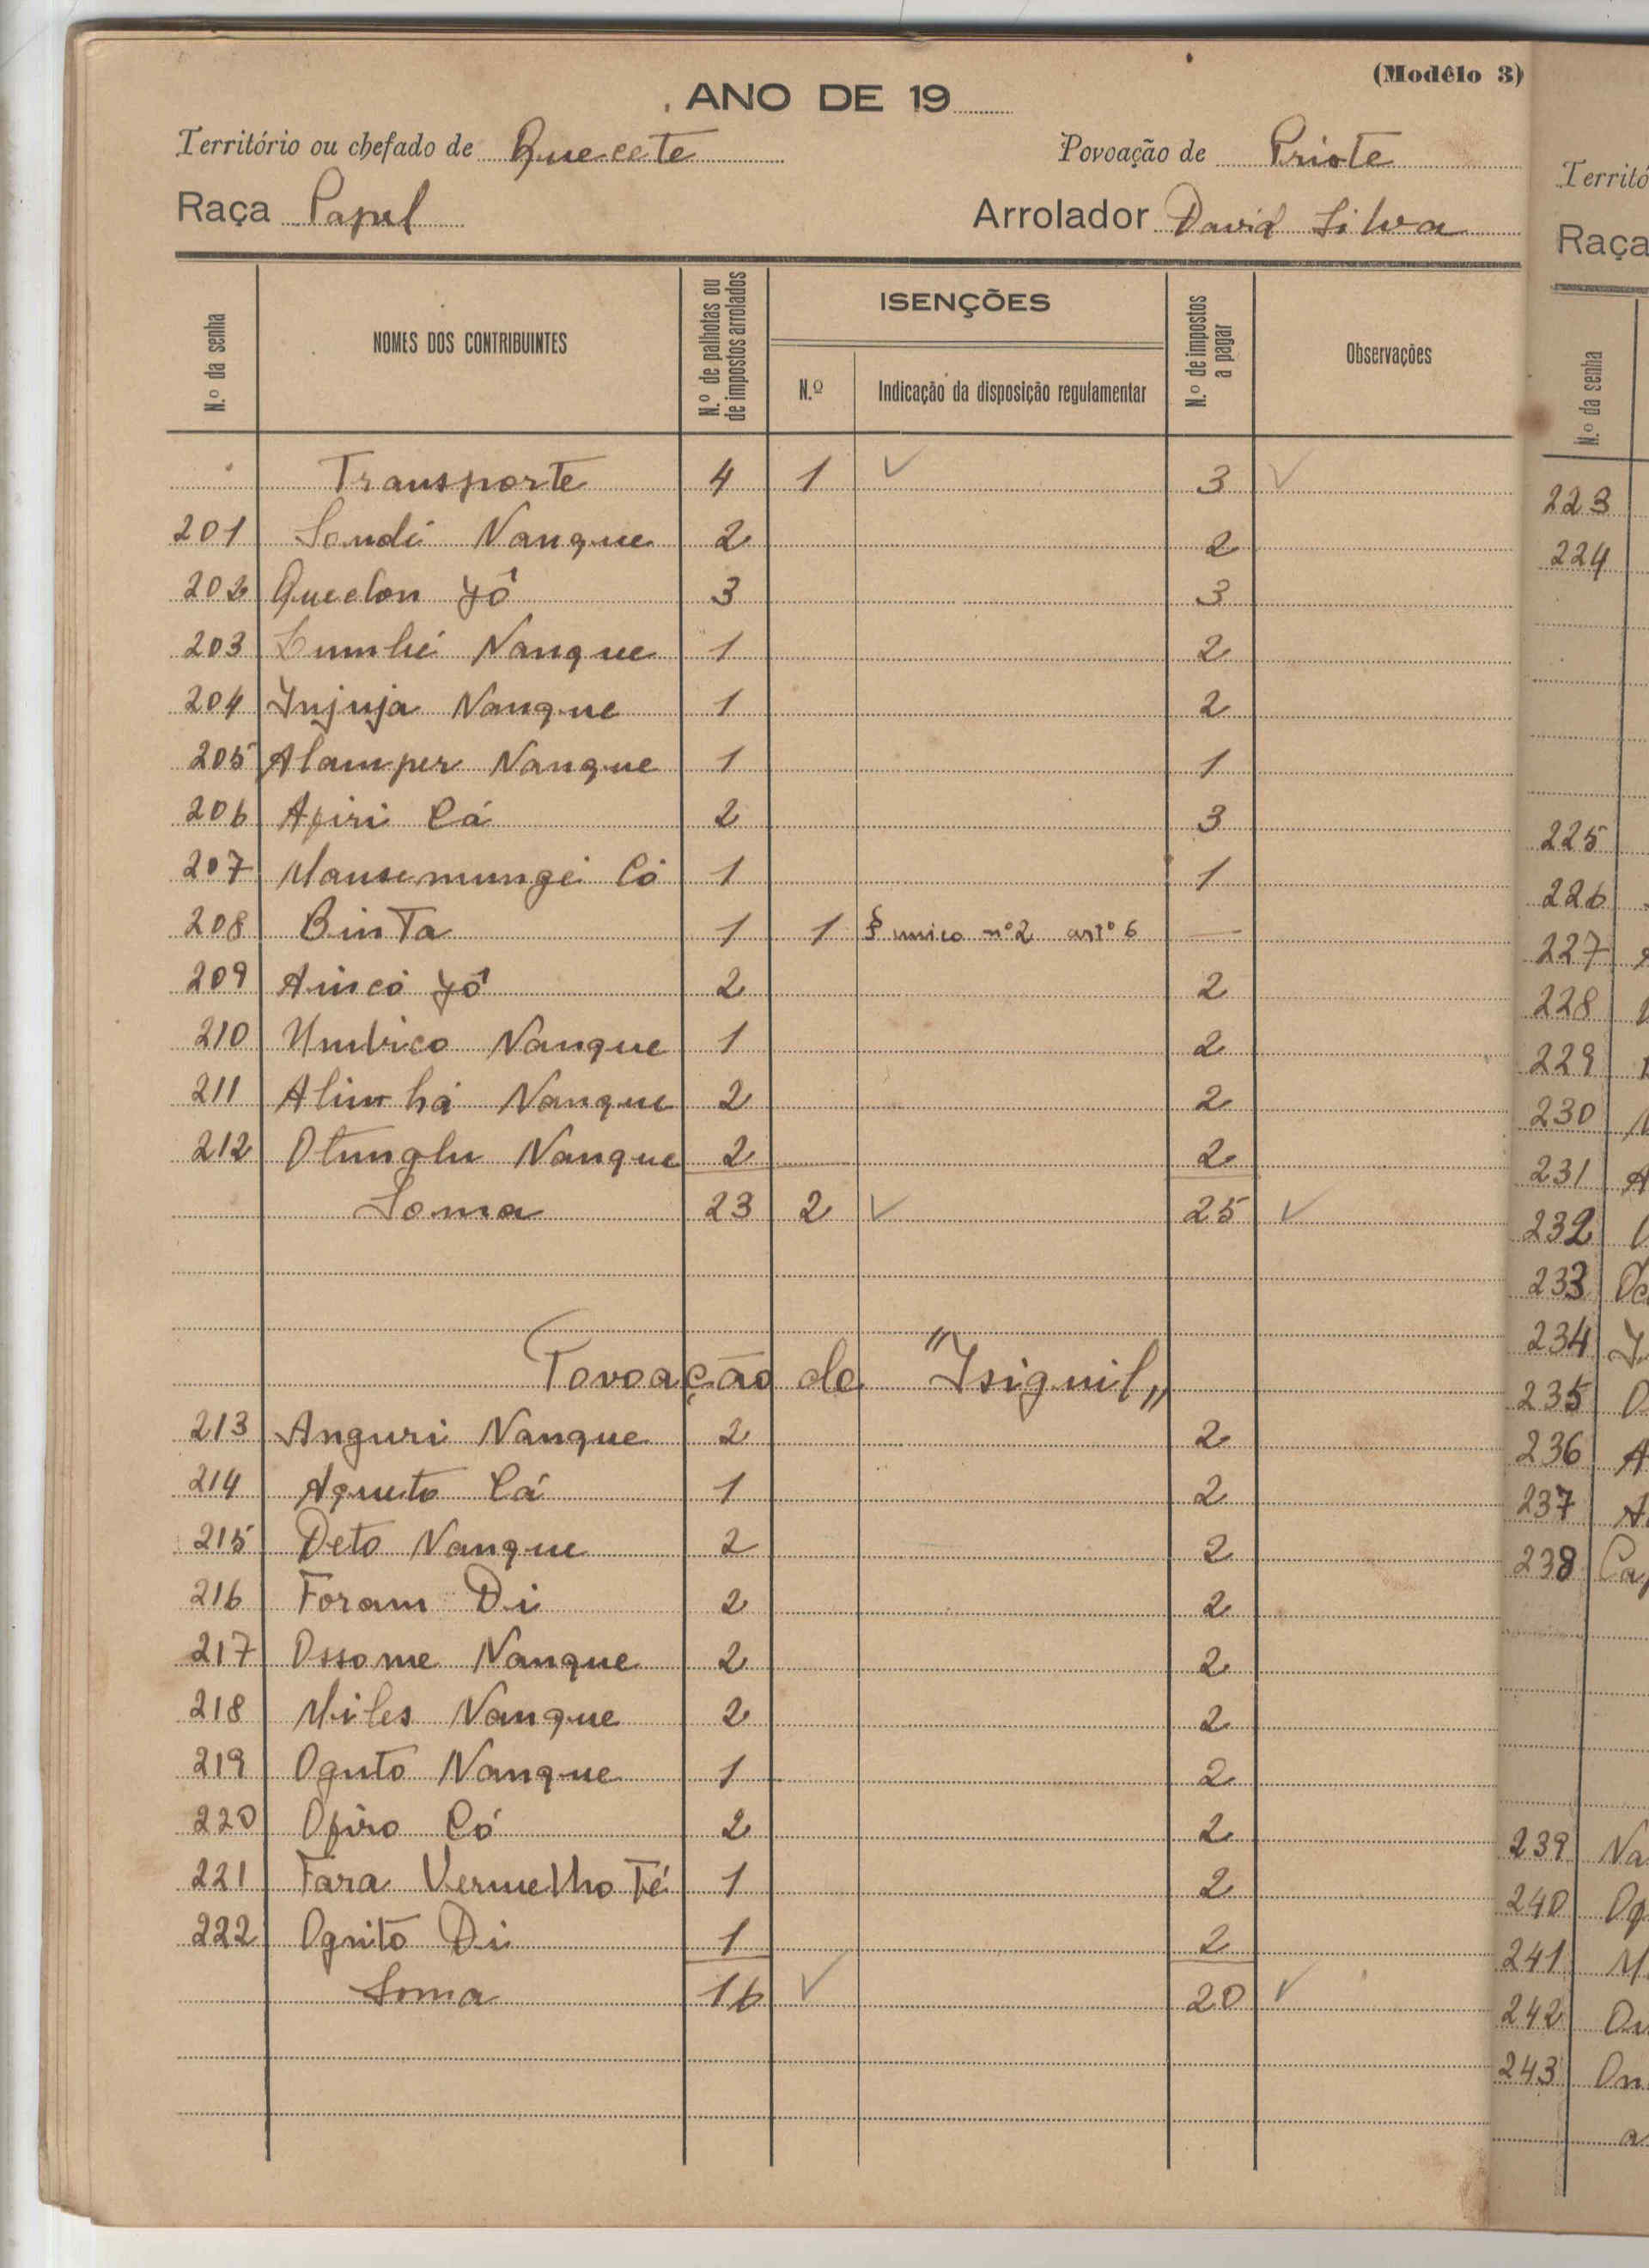 (Modêlo 3)
ANO DE 19
Território ou chefado de Quecete Povoação de Priote
Raça Papel Arrolador David Silva
N.º da senha NOMES DOS CONTRIBUINTES N.º de palhotas ou de impostos arrolados ISENÇÕES N.º Indicação da disposição regulamentar N.º de impostos a pagar Observações
Transporte 4 1 ✓ 3 ✓
201 Sandi Nanque 2 2
202 Quelon Yô 3 3
203 Nanque 1 2
204 Injuja Nanque 1 2
205 Alamper Nanque 1 1
206 Afiri Cá 2 3
207 Có 1 1
208 Binta 1 1 § unico nº2 artº 6 —
209 Aincó Yô 2 2
210 Umbrico Nanque 1 2
211 Alinhá Nanque 2 2
212 Otunglu Nanque 2 2
Soma 23 2 ✓ 25 ✓
Povoação de "Isiguil"
213 Anguri Nanque 2 2
214 Aqueto Cá 1 2
215 Deto Nanque 2 2
216 Foram Di 2 2
217 Ossome Nanque 2 2
218 Miles Nanque 2 2
219 Oguto Nanque 1 2
220 Ofiro Có 2 2
221 Fara Vermelho Té 1 2
222 Ognito Di 1 2
Soma 16 ✓ 20 ✓
Territó
Raça
N.º da senha
223
224
225
226
227
228
229
230
231
232
233
234
235
236
237
238
239 Na
240
241
242
243